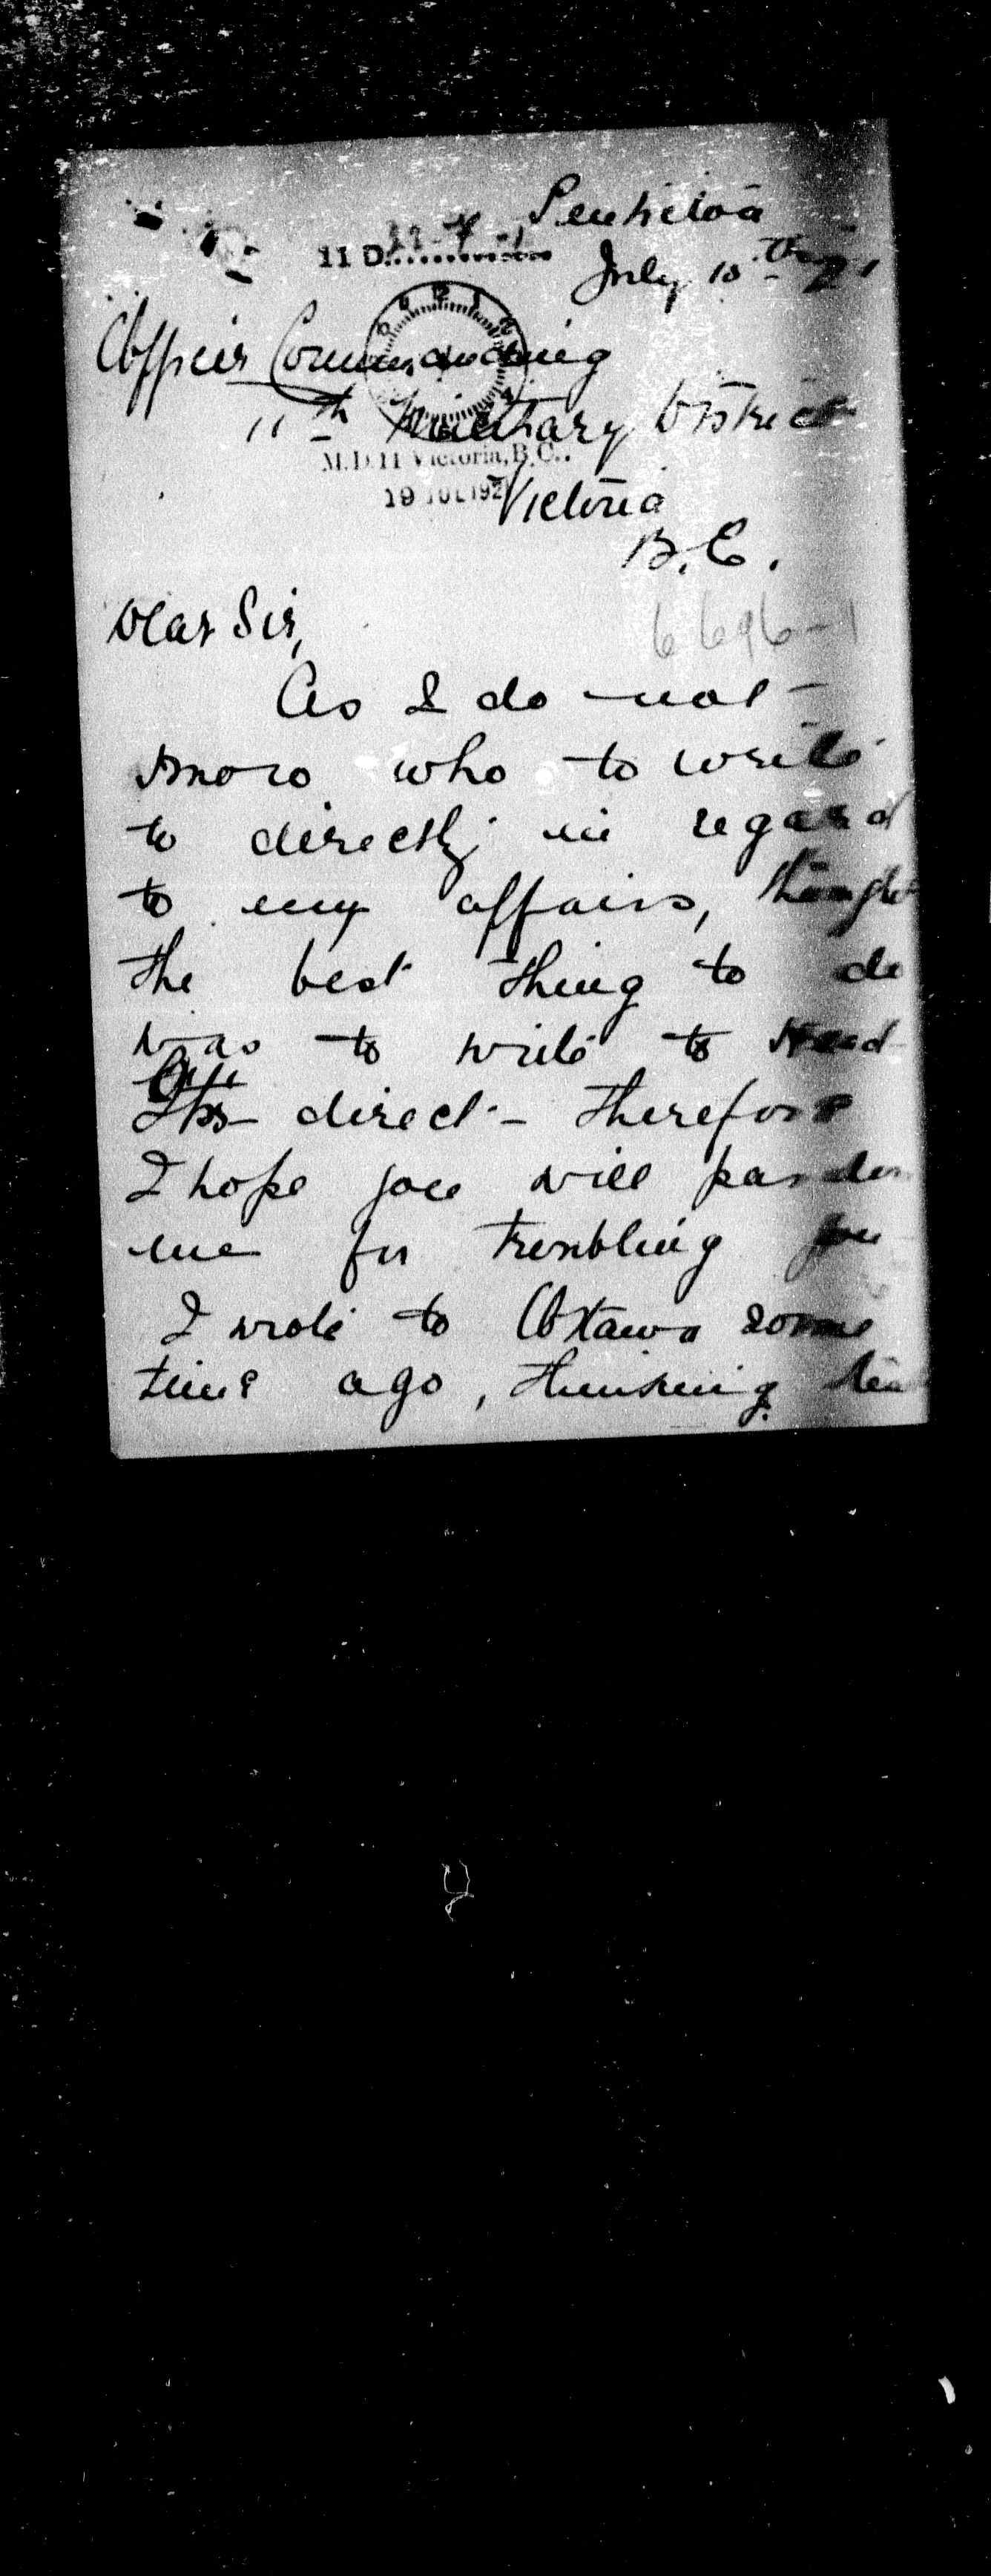 Penticton
11 D.
July 18th 21
Officer Commanding
11th Military District
M.D. 11 Victoria, B.C.
19 JUL 192
Victoria
B.C.
6696-1
Dear Sir,
As I do not
know who to write
to directly in regard
to my affairs, thought
the best thing to do
was to write to Head
direct - Therefore
I hope you will pardon
me for troubling you
I wrote to Ottawa some
time ago, thinking